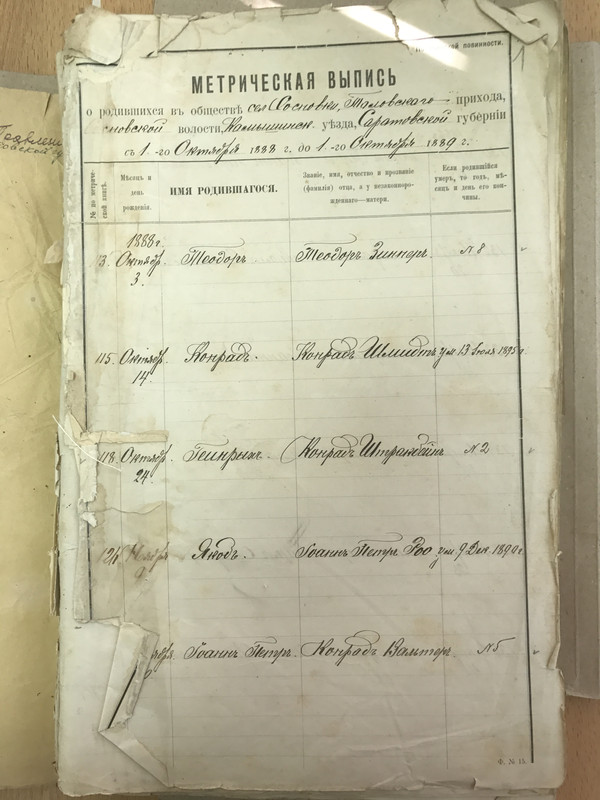 повинности.
1
МЕТРИЧЕСКАЯ ВЫПИСЬ
о родившихся въ обществѣ села Сосновки, Таловскаго прихода,
сновской волости, Камышинск. уѣзда, Саратовской губерніи
съ 1-го Октября 1888 г. до 1-го Октября 1889 г.
№ по метрической книгѣ.
Мѣсяцъ и день рожденія.
ИМЯ РОДИВШАГОСЯ.
Званіе, имя, отчество и прозваніе (фамилія) отца, а у незаконнорожденнаго—матери.
Если родившійся умеръ, то годъ, мѣсяцъ и день его кончины.
1888 г.
3. Октябр. 3. Теодоръ Теодоръ Зиннеръ. N 8
115. Октябр. 14. Конрадъ. Конрадъ Шмидтъ ум 13 Іюля 1895 г.
118. Октябр. 24. Генрихъ. Конрадъ Штракбейнъ N 2
Якобъ. Іоаннъ Петръ Роо ум 9 Дек. 1890 г.
Іоаннъ Петръ. Конрадъ Вальтеръ. N 5
Ф. № 13.